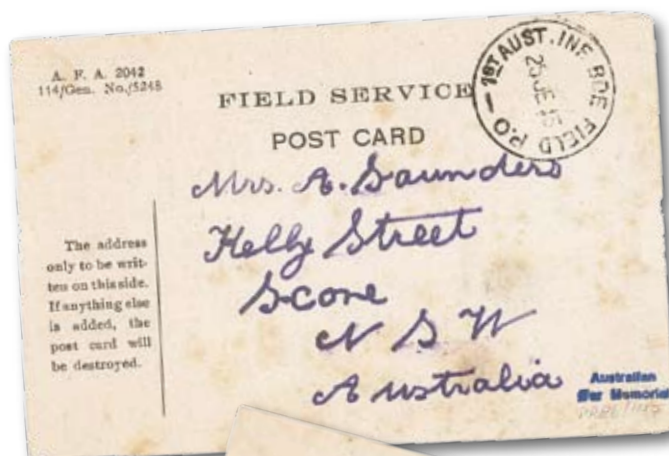 A. F. A. 2042
114/Gen. No./5248
FIELD SERVICE
POST CARD
1ST AUST. INF BDE FIELD P.O
25 JE 15
Mrs. A. Saunders
Kelly Street
Scone
N S W
Australia
The address
only to be writ-
ten on this side.
If anything else
is added, the
post card will
be destroyed.
Australian
War Memorial